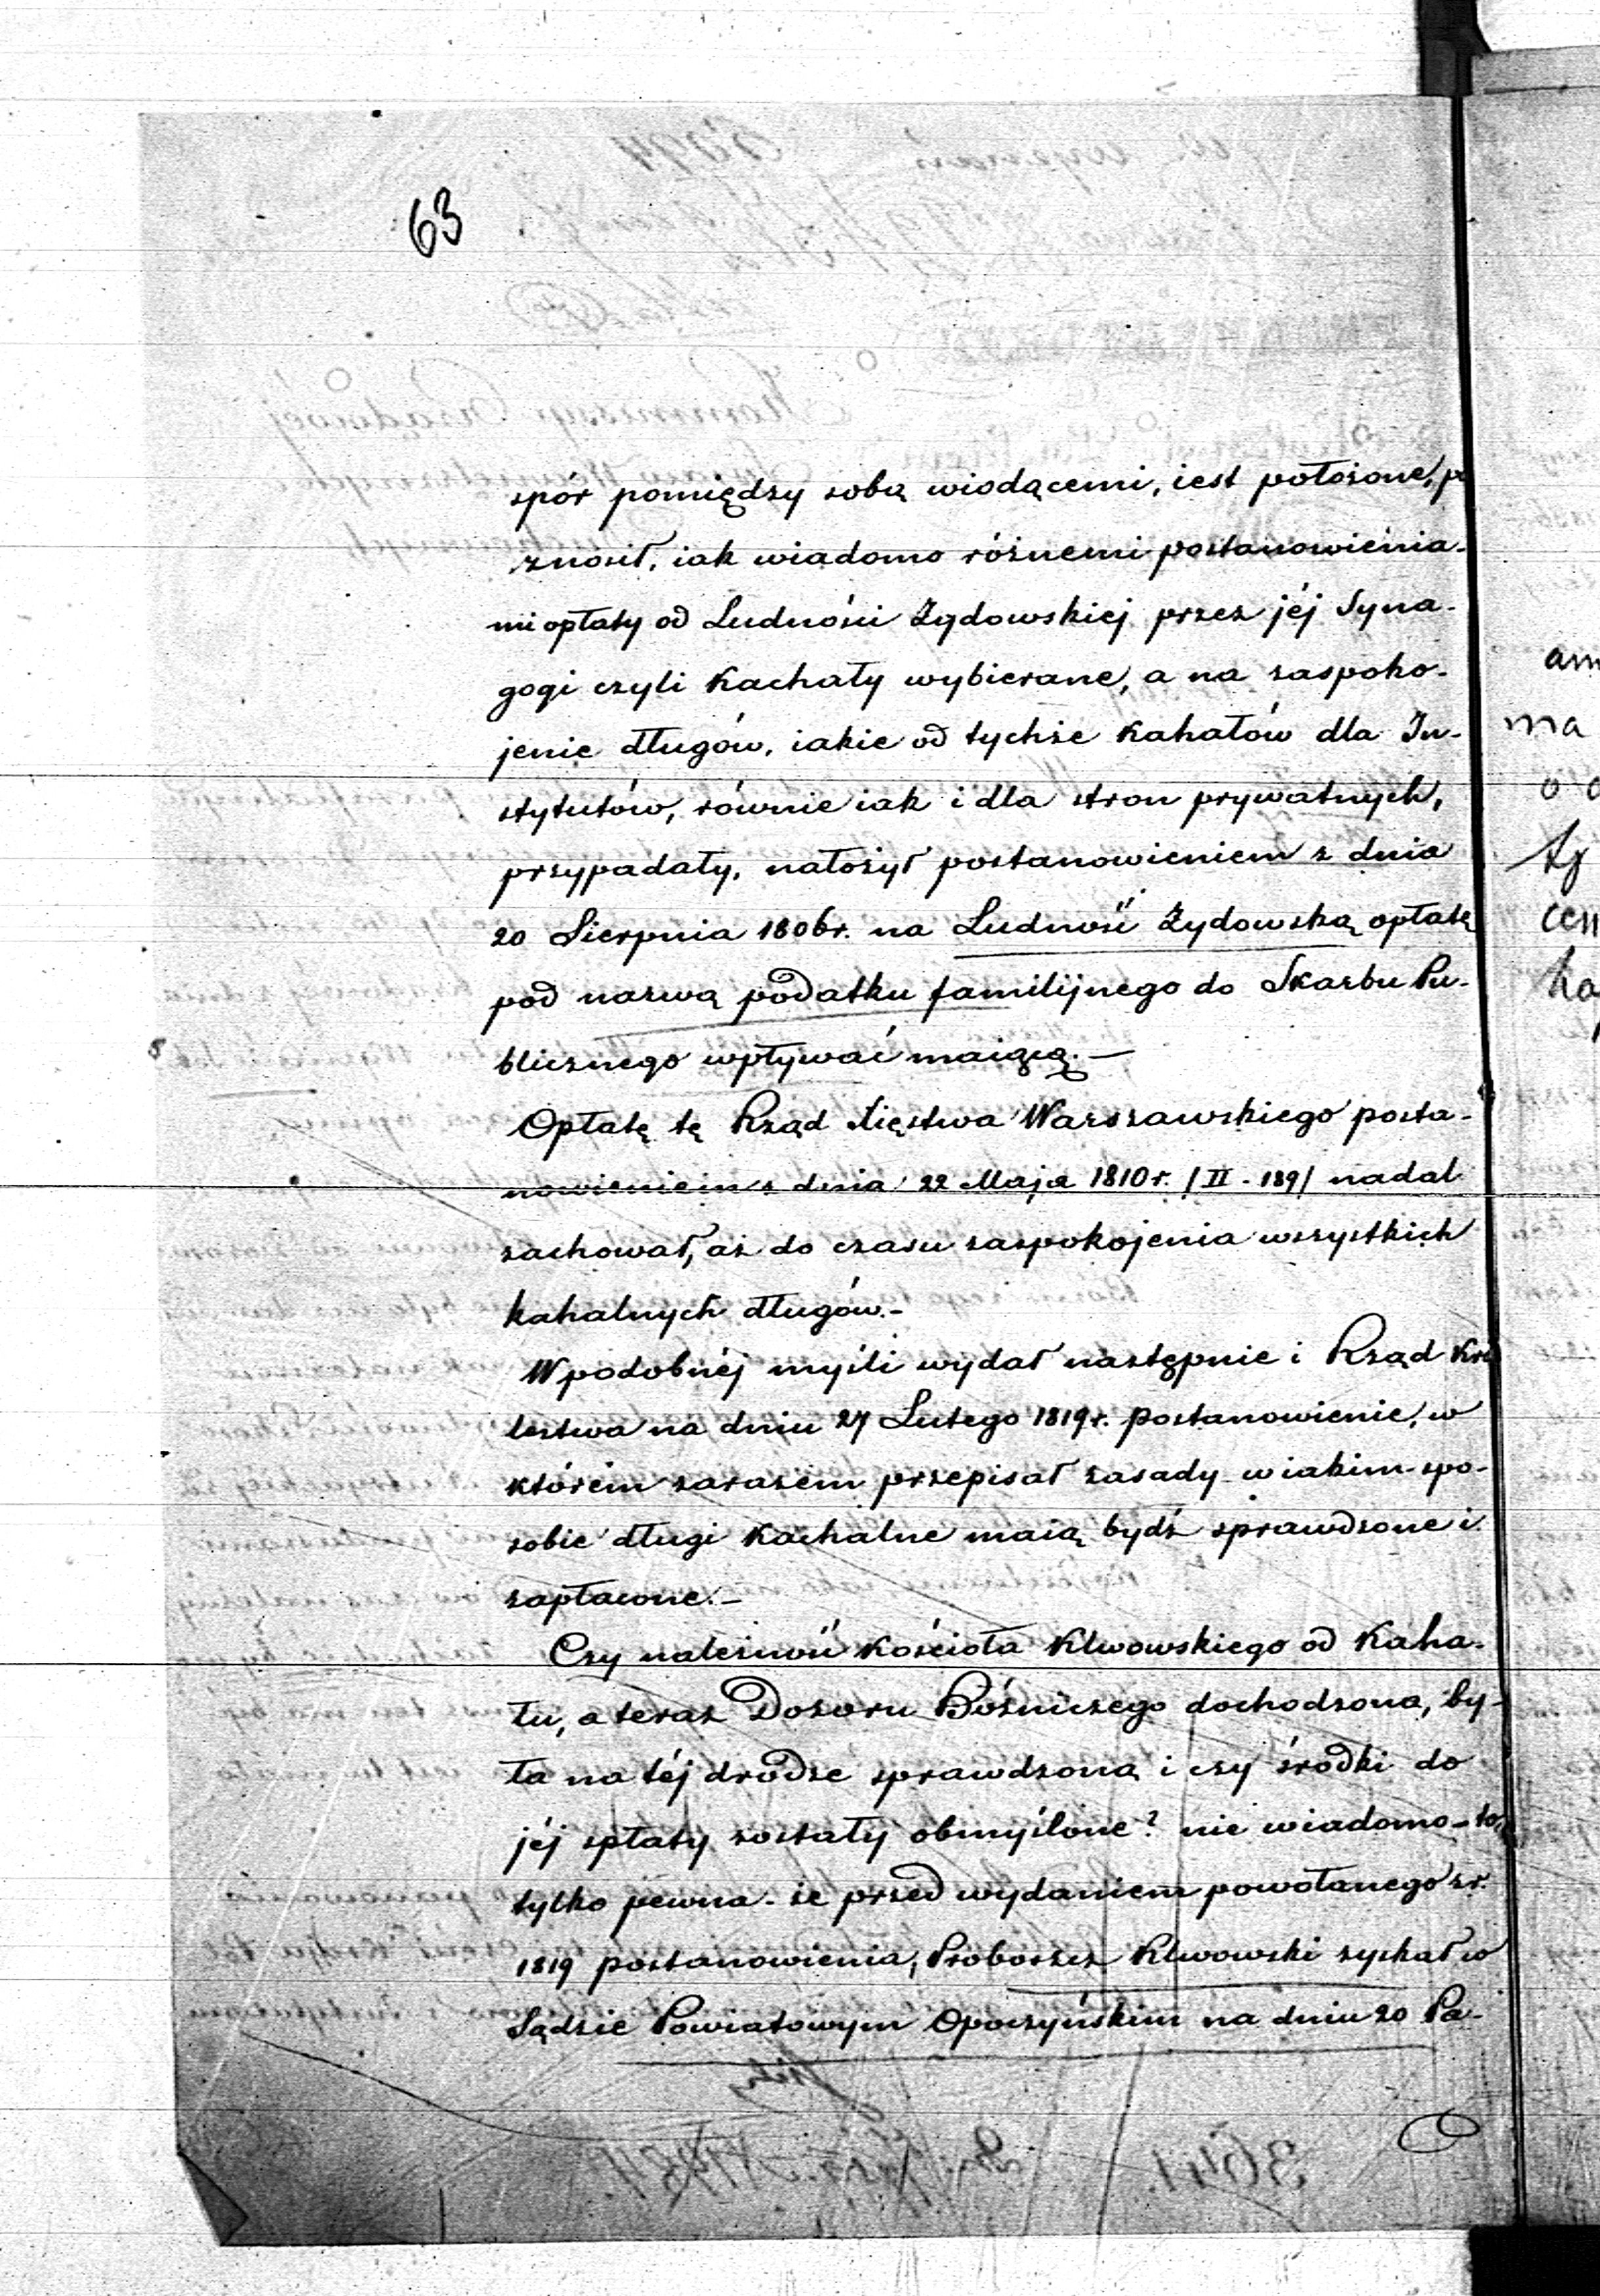 63
spór pomiędzy sobą wiodącemi, iest położone, po
znosił, iak wiadomo różnemi postanowienia-
mi opłaty od Ludności Żydowskiej przez jéj Syna-
gogi czyli Kachały wybierane, a na zaspoko-
jenie długów, iakie od tychże Kahałów dla In-
stytutów, równie iak i dla stron prywatnych,
przypadały, nałożył postanowieniem z dnia
20 Sierpnia 1806 r. na Ludność Żydowską opłatę
pod nazwą podatku familijnego do Skarbu Pu-
blicznego wpływać maiącą. —
Opłatę tę Rząd Xięstwa Warszawskiego posta-
nowieniem z dnia 22 Maja 1810 r. /II - 189/ nadal
zachował, aż do czasu zaspokojenia wszystkich
kahalnych długów. -
W podobnéj myśli wydał następnie i Rząd Kró
lestwa na dniu 27 Lutego 1819 r. postanowienie, w
którém zarazem przepisał zasady w iakim spo-
sobie długi Kachalne maią bydź sprawdzone i
zapłacone. -
Czy należność Kościoła Klwowskiego od Kaha-
łu, a teraz Dozoru Bóżniczego dochodzona, by-
ła na téj drodze sprawdzoną i czy środki do
jéj spłaty zostały obmyślone? nie wiadomo - to
tylko pewna - że przed wydaniem powołanego z r.
1819 postanowienia, Proboszcz Klwowski zyskał w
Sądzie Powiatowym Opoczyńskim na dniu 20 Pa-
am
ma